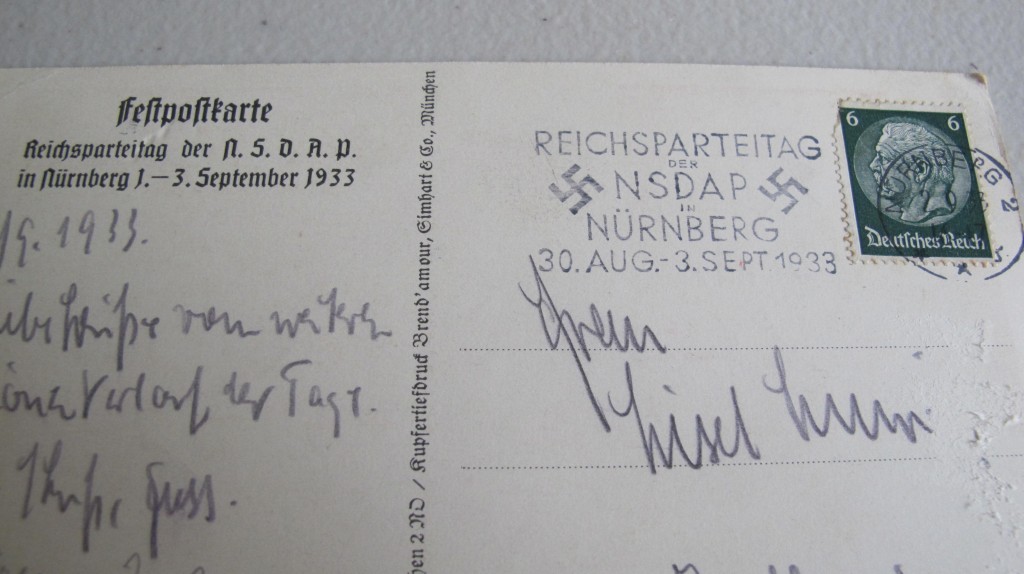 Festpostkarte
Reichsparteitag der N. S. D. A. P.
in Nürnberg 1.—3. September 1933
/9. 1933.
vom weiteren
Verlauf der Tage.
hen 2 NO / Kupfertiefdruck Brend'amour, Simhart & Co., München
REICHSPARTEITAG
DER
NSDAP
IN
NÜRNBERG
30. AUG.-3. SEPT. 1933
6 6
Deutsches Reich
2
Lisel